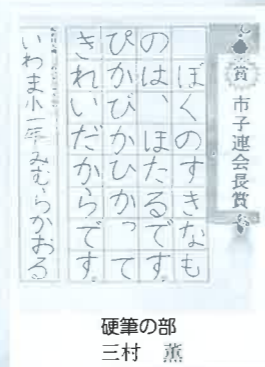 賞 市子連会長賞
ぼくのすきなも
のは、ほたるです。
ぴかぴかひかって
きれいだからです。
いわま小一年みむらかおる
硬筆の部
三村 薫